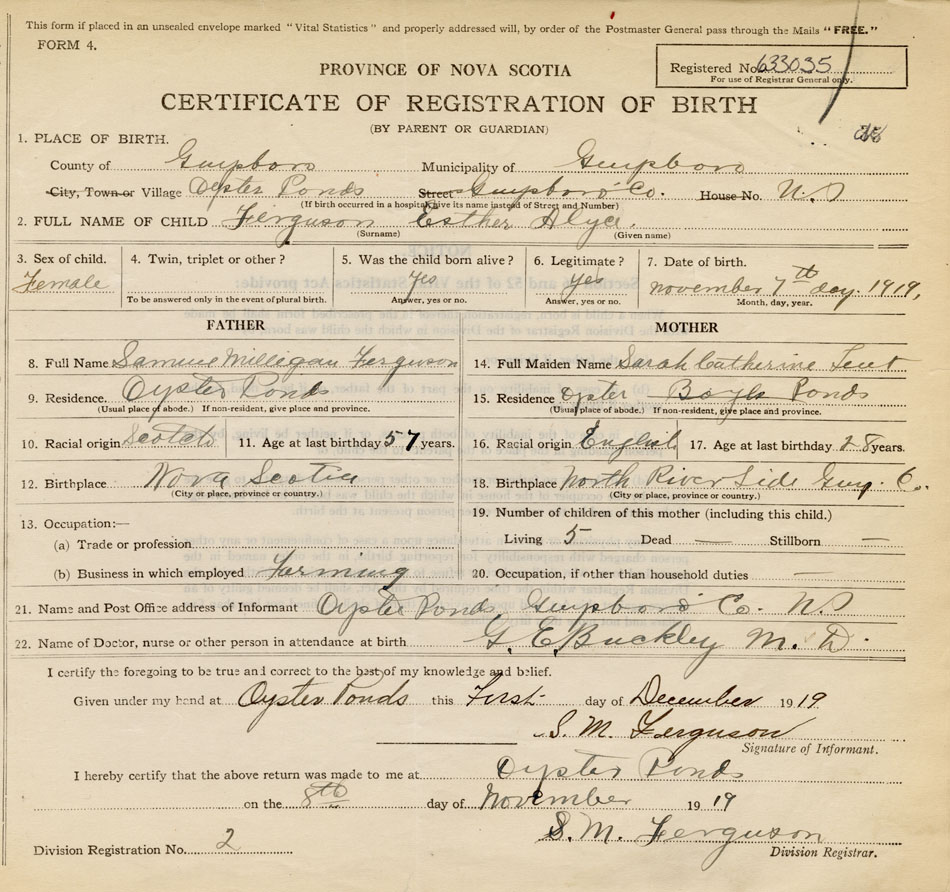 This form if placed in an unsealed envelope marked "Vital Statistics" and properly addressed will, by order of the Postmaster General pass through the Mails "FREE."
FORM 4.
Registered No. 633035
For use of Registrar General only.
PROVINCE OF NOVA SCOTIA
CERTIFICATE OF REGISTRATION OF BIRTH
(BY PARENT OR GUARDIAN)
1. PLACE OF BIRTH.
County of Guysboro Municipality of Guysboro
City, Town or Village Oyster Ponds Street Guysboro Co. House No. N.S
(If birth occurred in a hospital, give its name instead of Street and Number)
2. FULL NAME OF CHILD Ferguson Esther Alyce
(Surname) (Given name)
3. Sex of child. 4. Twin, triplet or other? 5. Was the child born alive? 6. Legitimate? 7. Date of birth.
Female Yes yes November 7th day. 1919,
To be answered only in the event of plural birth. Answer, yes or no. Answer, yes or no. Month, day, year.
FATHER MOTHER
8. Full Name Samuel Milligan Ferguson 14. Full Maiden Name Sarah Catherine
9. Residence. Oyster Ponds 15. Residence Oyster Ponds
(Usual place of abode.) If non-resident, give place and province. (Usual place of abode.) If non-resident, give place and province.
10. Racial origin Scotch 11. Age at last birthday 57 years. 16. Racial origin English 17. Age at last birthday 28 years.
12. Birthplace Nova Scotia 18. Birthplace North River Side Guy. C.
(City or place, province or country.) (City or place, province or country.)
13. Occupation:— 19. Number of children of this mother (including this child.)
(a) Trade or profession. Living 5 Dead — Stillborn —
(b) Business in which employed Farming 20. Occupation, if other than household duties —
21. Name and Post Office address of Informant Oyster Ponds, Guysboro Co. N.S
22. Name of Doctor, nurse or other person in attendance at birth G. E. Buckley M. D.
I certify the foregoing to be true and correct to the best of my knowledge and belief.
Given under my hand at Oyster Ponds this First day of December 1919
S. M. Ferguson
Signature of Informant.
I hereby certify that the above return was made to me at Oyster Ponds
on the 8th day of November 1919
S. M. Ferguson
Division Registration No. 2 Division Registrar.